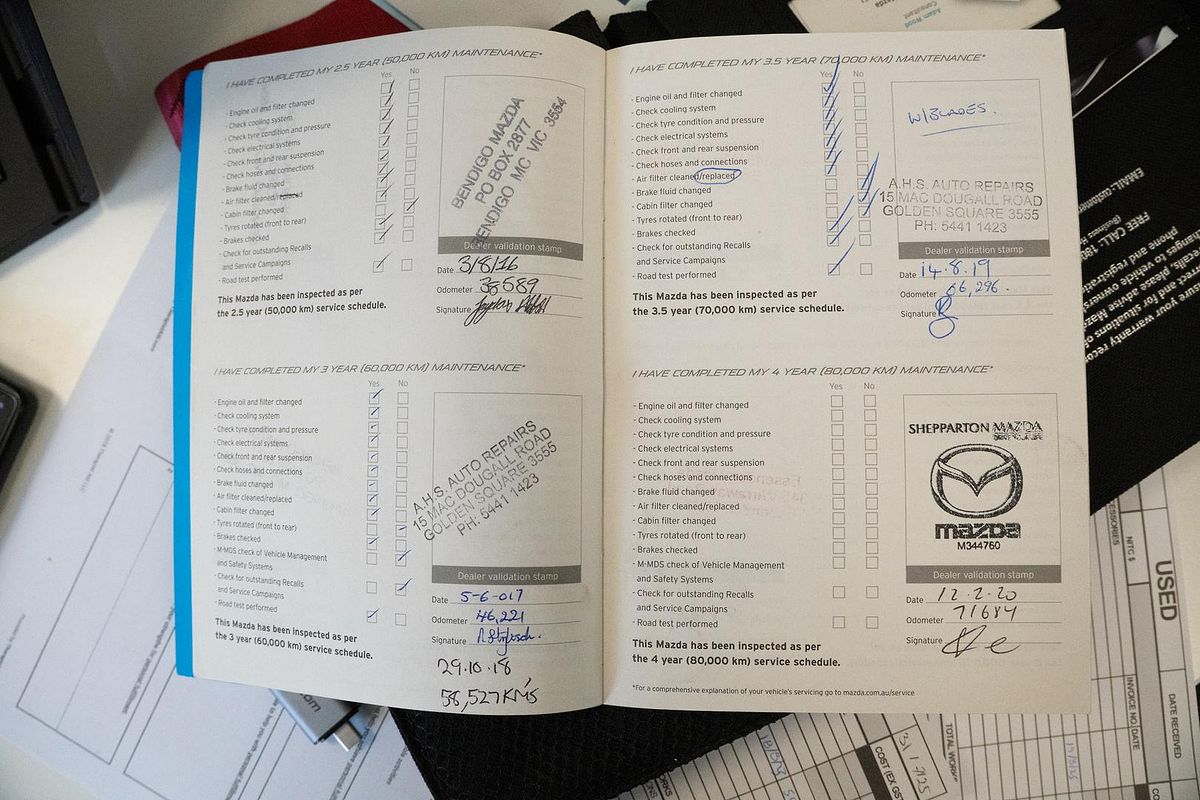 I HAVE COMPLETED MY 2.5 YEAR (50,000 KM) MAINTENANCE*
Yes No
- Engine oil and filter changed
- Check cooling system
- Check tyre condition and pressure
- Check electrical systems
- Check front and rear suspension
- Check hoses and connections
- Brake fluid changed
- Air filter cleaned/replaced
- Cabin filter changed
- Tyres rotated (front to rear)
- Brakes checked
- Check for outstanding Recalls
and Service Campaigns
- Road test performed
This Mazda has been inspected as per
the 2.5 year (50,000 km) service schedule.
BENDIGO MAZDA
PO BOX 2877
BENDIGO MC VIC 3554
Dealer validation stamp
Date 3/8/16
Odometer 38589
Signature
I HAVE COMPLETED MY 3 YEAR (60,000 KM) MAINTENANCE*
Yes No
- Engine oil and filter changed
- Check cooling system
- Check tyre condition and pressure
- Check electrical systems
- Check front and rear suspension
- Check hoses and connections
- Brake fluid changed
- Air filter cleaned/replaced
- Cabin filter changed
- Tyres rotated (front to rear)
- Brakes checked
- M-MDS check of Vehicle Management
and Safety Systems
- Check for outstanding Recalls
and Service Campaigns
- Road test performed
This Mazda has been inspected as per
the 3 year (60,000 km) service schedule.
A.H.S. AUTO REPAIRS
15 MAC DOUGALL ROAD
GOLDEN SQUARE 3555
PH: 5441 1423
Dealer validation stamp
Date 5-6-017
Odometer 46,221
Signature
29.10.18
58,527KMS
I HAVE COMPLETED MY 3.5 YEAR (70,000 KM) MAINTENANCE*
Yes No
- Engine oil and filter changed
- Check cooling system
- Check tyre condition and pressure
- Check electrical systems
- Check front and rear suspension
- Check hoses and connections
- Air filter cleaned/replaced
- Brake fluid changed
- Cabin filter changed
- Tyres rotated (front to rear)
- Brakes checked
- Check for outstanding Recalls
and Service Campaigns
- Road test performed
This Mazda has been inspected as per
the 3.5 year (70,000 km) service schedule.
W/BLADES.
A.H.S. AUTO REPAIRS
15 MAC DOUGALL ROAD
GOLDEN SQUARE 3555
PH: 5441 1423
Dealer validation stamp
Date 14.8.19
Odometer 66,296.
Signature
I HAVE COMPLETED MY 4 YEAR (80,000 KM) MAINTENANCE*
Yes No
- Engine oil and filter changed
- Check cooling system
- Check tyre condition and pressure
- Check electrical systems
- Check front and rear suspension
- Check hoses and connections
- Brake fluid changed
- Air filter cleaned/replaced
- Cabin filter changed
- Tyres rotated (front to rear)
- Brakes checked
- M-MDS check of Vehicle Management
and Safety Systems
- Check for outstanding Recalls
and Service Campaigns
- Road test performed
This Mazda has been inspected as per
the 4 year (80,000 km) service schedule.
SHEPPARTON MAZDA
mazda
M344760
Dealer validation stamp
Date 12.2.20
Odometer 71684
Signature
*For a comprehensive explanation of your vehicle's servicing go to mazda.com.au/service
Adam Wood
Consultant
FREE CALL:
USED
NITC $
DATE RECEIVED
INVOICE NO./DATE
TOTAL WORK
COST (EX